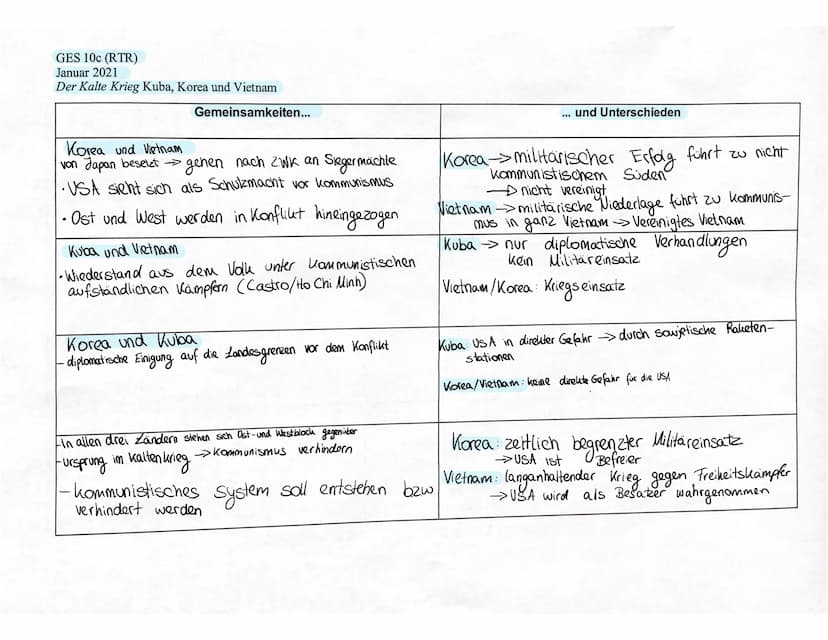 GES 10c (RTR)
Januar 2021
Der Kalte Krieg Kuba, Korea und Vietnam
Gemeinsamkeiten...
... und Unterschieden
Korea und Vietnam
von Japan besetzt → gehen nach 2WK an Siegermächte
• USA sieht sich als Schutzmacht vor Kommunismus
• Ost und West werden in Konflikt hineingezogen
Korea → militärischer Erfolg führt zu nicht
kommunistischem Süden
→ nicht vereinigt
Vietnam → militärische Niederlage führt zu Kommunis-
mus in ganz Vietnam → Vereinigtes Vietnam
Kuba und Vietnam
• Wiederstand aus dem Volk unter kommunistischen
aufständlichen Kämpfern (Castro/Ho Chi Minh)
Kuba → nur diplomatische Verhandlungen
kein Militäreinsatz
Vietnam/Korea: Kriegseinsatz
Korea und Kuba
– diplomatische Einigung auf die Landesgrenzen vor dem Konflikt
Kuba: USA in direkter Gefahr → durch sowjetische Raketen-
stationen
Korea/Vietnam: keine direkte Gefahr für die USA
- In allen drei Ländern stehen sich Ost- und Westblock gegenüber
- Ursprung im Kalten Krieg → Kommunismus verhindern
– kommunistisches System soll entstehen bzw
verhindert werden
Korea: zeitlich begrenzter Militäreinsatz
→ USA ist Befreier
Vietnam: langanhaltender Krieg gegen Freiheitskämpfer
→ USA wird als Besatzer wahrgenommen